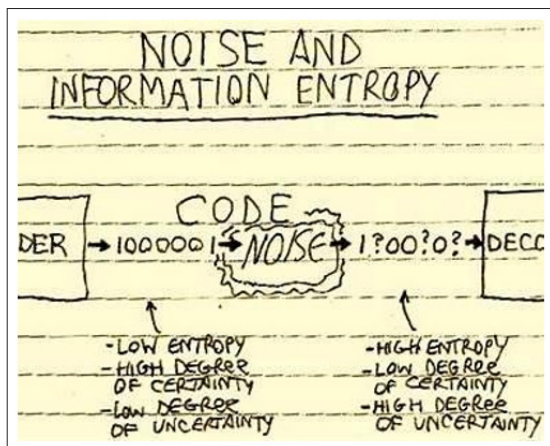 NOISE AND
INFORMATION ENTROPY
CODE
DER → 1000001 → NOISE → 1?00?0? → DECO
-LOW ENTROPY
-HIGH DEGREE
OF CERTAINTY
-LOW DEGREE
OF UNCERTAINTY
-HIGH ENTROPY
-LOW DEGREE
OF CERTAINTY
-HIGH DEGREE
OF UNCERTAINTY